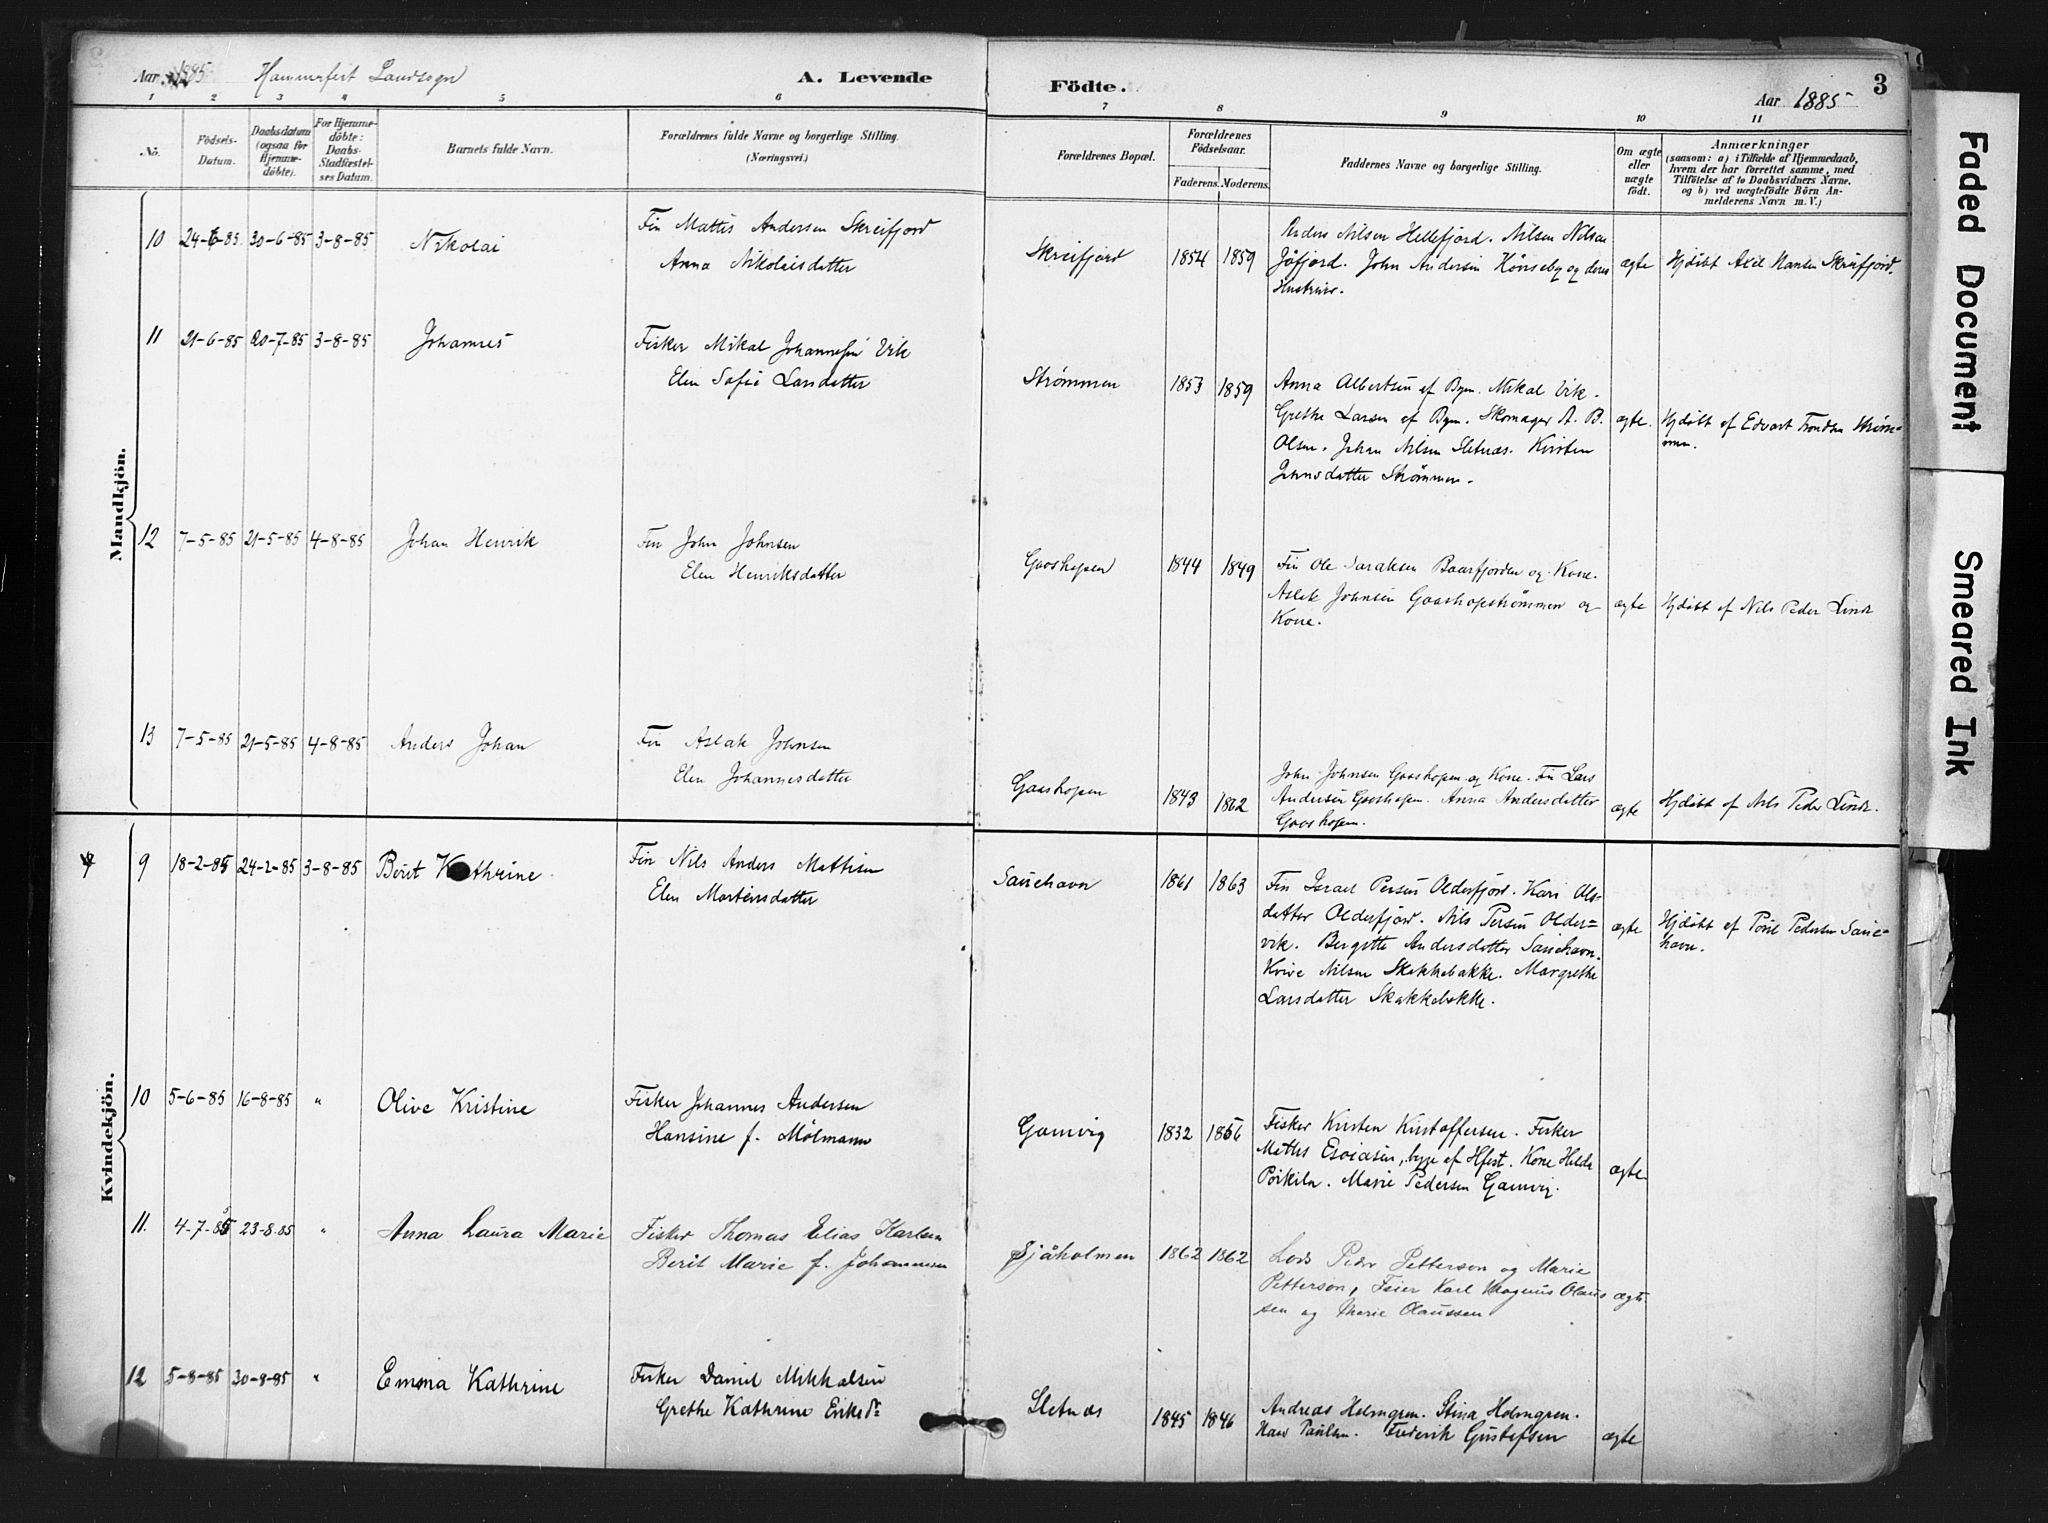 Aar 1885 Hammerfest Landsogn
A. Levende
Födte.
Aar 1885
3
1 2 3 4 5 6 7 8 9 10 11
No.
Födsels-
Datum.
Daabsdatum
(ogsaa for
Hjemme-
döbte).
For Hjemme-
döbte:
Daabs-
Stadfæstel-
ses Datum.
Barnets fulde Navn.
Forældrenes fulde Navne og borgerlige Stilling.
(Næringsvei.)
Forældrenes Bopæl.
Forældrenes
Födselsaar.
Faderens. Moderens.
Faddernes Navne og borgerlige Stilling.
Om ægte
eller
uægte
födt.
Anmærkninger
(saasom: a) i Tilfælde af Hjemmedaab,
hvem der har forrettet samme, med
Tilföielse af to Daabsvidners Navne.
og b) ved uægtefödte Börn An-
melderens Navn m. V.)
Mandkjön.
10 24-6-85 30-6-85 3-8-85 Nikolai
Fin Mattis Andersen Skreifjord
Anna Nikolaisdatter
Skreifjord 1854 1859
Anders Nilsen Hellefjord. Nilsen Nilsen
Jøfjord. John Andersen Kønseby og deres
Hustruer.
ægte
Hjdøbt Axel Hansen Skreifjord.
11 21-6-85 20-7-85 3-8-85 Johannes
Fisker Mikal Johannesen Vik
Elen Sofie Larsdatter
Strømmen 1853 1859
Anna Albertsen af Byen. Mikal Vik.
Grethe Larsen af Byen. Skomager A. B.
Olsen. Johan Nilsen Sletnæs. Kirsten
Jensdatter Strømmen.
ægte.
Hjdøbt af Edvart Trondsen Strøm=
men.
12 7-5-85 21-5-85 4-8-85 Johan Henrik
Fin John Johnsen
Elen Henriksdatter
Gaashopen 1844 1849
Fin Ole Israksen Baarfjorden og Kone.
Aslak Johnsen Gaashopstrømmen og
Kone.
ægte
Hjdøbt af Nils Peder Lind
13 7-5-85 21-5-85 4-8-85 Anders Johan
Fin Aslak Johnsen
Elen Johannesdatter
Gaashopen 1843 1862
John Johnsen Gaashopen og Kone. Fin Lars
Andersen Gaashopen. Anna Andersdatter
Gaashopen.
ægte
Hjdøbt af Nils Peder Lind.
Kvindekjön.
9 18-2-85 24-2-85 3-8-85 Berit Kathrine
Fin Nils Anders Mattisen
Elen Mortensdatter
Sauehavn 1861 1863
Fin Israel Persen Olderfjord. Kari Ols-
datter Olderfjord. Nils Persen Older=
vik. Bergitte Andersdatter Sauehavn.
Nilsen Skakkebakke. Margrethe
Larsdatter Skakkebakke.
ægte
Hjdøbt af Poul Pedersen Saue-
havn.
10 5-6-85 16-8-85 " Olive Kristine
Fisker Johannes Andersen
Hansine f. Mølmann
Gamvig 1832 1856
Fisker Kristen Kristoffersen. Fisker
Mathis Esaiasen, begge af Hfest. Kone Hilda
Marie Pedersen Gamvig.
ægte
11. 4-7-85 23-8-85 " Anna Laura Marie
Fisker Thomas Elias Karlsen
Berit Marie f. Johannesen
Sjåholmen 1862 1862
Lods Peder Petterson og Marie
Petterson, Feier Karl Magnus Olaus
sen og Marie Olaussen
ægte
12 5-8-85 30-8-85 " Emma Kathrine
Fisker Daniel Mikkalsen
Grethe Kathrine Eriksdr
Sletnæs 1845 1846
Andreas Holmgren. Stina Holmgren.
Paulsen. Frederik Gustafsen
ægte
Faded Document
Smeared Ink